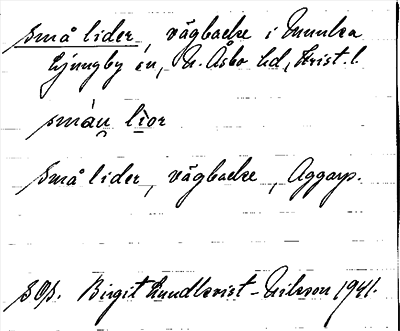 små lider, vägbacke i Munka
Ljungby sn, N. Åsbo hd, Krist. l.
småu̯ lìor
Små lider, vägbacke, Aggarp.
SOS. Birgit Lundkvist-Nilsson 1941.